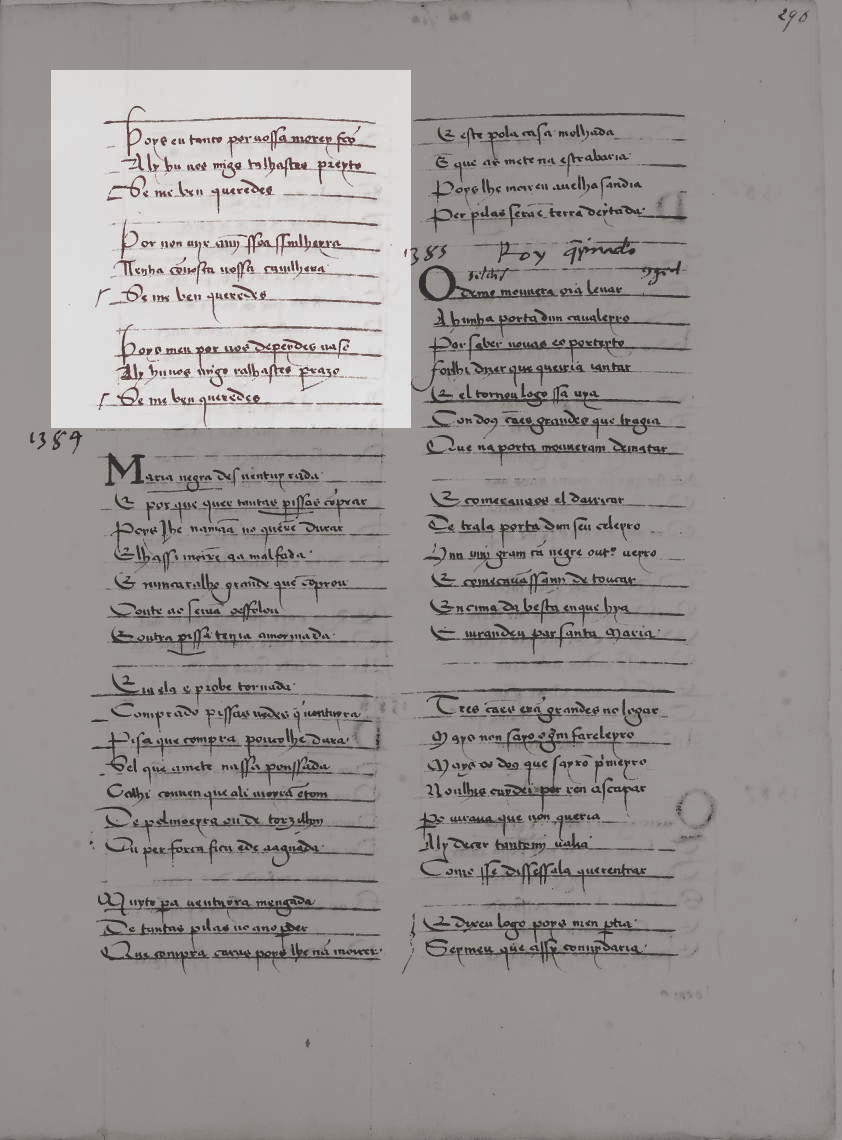 290
Poys eu tanto por uossa morey
Aly hu nos migo talhastes preyto
Se me ben queredes
Por non uyr assy ssoa ssmlheyra
Uenha uosca uossa couilheyra
Se me ben queredes
Poys meu por uos
Aly hu uos migo talhastes prazo
Se me ben queredes
1384
Maria negra desuentuyrada
E por que quer tantas pissas cōprar
Poys lhe na māa no querē durar
E lhassi moire aa malfada
E nunca ralho grande que coprou
Oonte ao serāa o esfolou
E outra pissa tenia amormada
E ia ela e probe tornada
Comprado pissas uedes q̄ uentuyra
Pisa que compra pouco lhe dura
Sol que a mete na ssa poussada
Ca lhi conuen que ali moyra
De polmoeyra ou de torzilhon
Ou per força fica ēde aaguada
Muyto pa uentuyra menguada
De tantas pisas no ano pder
Que compra caras poys lhe nā morrer
E esto pola casa molhada
E que as mete na estrabaria
Poys lhe morreu a uelha sandia
Per pisas serāe terra deytada
1385
Roy
O demo mouuera oia leuar
A hunha porta dun caualeyro
Por saber nouas
foilhi dizer que queria iantar
E el tornou logo ssa uya
Con dous cāes grandes que tragia
Que na porta mouueram de matar
E començauos el dauicar
De trala porta dun seu celeyro
Hun muj gram cā negre out° ueyro
E começauāssann de toucar
En cima da besta en que hya
E iurandeu par santa Maria
Tres cāes erā grandes no logar
Mays non sayo o fareleyro
Mays os dous que sayrō p̄meyro
Nonlhis cuydei per ren a scapar
Po uiraua que non queria
Aly decer tantomj ualia
Como sse dissessala quer entrar
E dixeu logo poys men ptia
Seymeu que assy conuydaria